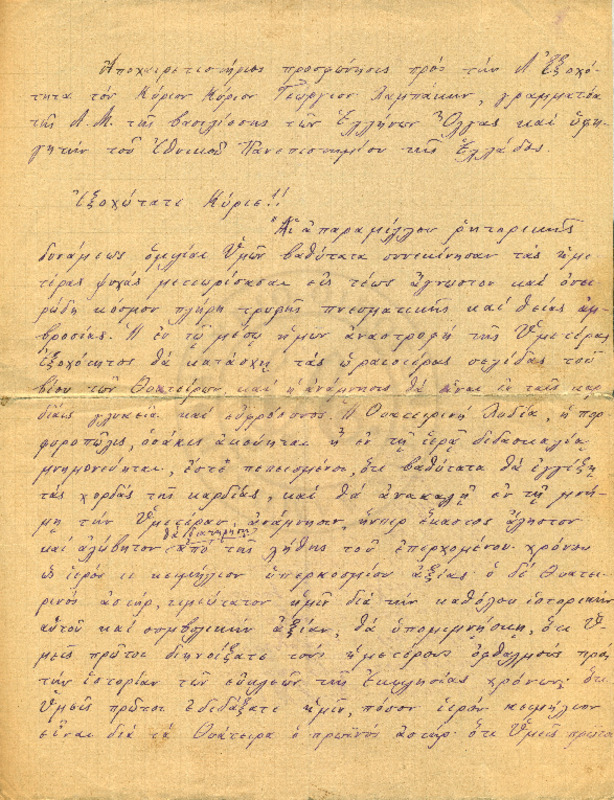 Ἀποχαιρετιστήριος προσφώνησις πρὸς τὴν Α. Ἐξοχό-
τητα τὸν Κύριον Κύριον Γεώργιον Λαμπάκην, γραμματέα
τῆς Α. Μ. τῆς βασιλίσσης τῶν Ἑλλήνων Ὄλγας καὶ ὑφη-
γητὴν τοῦ Ἐθνικοῦ Πανεπιστημίου τῆς Ἑλλάδος.
Ἐξοχώτατε Κύριε!!
Αἱ ἀπαραμίλλου ῥητορικῆς
δυνάμεως ὁμιλίαι Ὑμῶν βαθύτατα συνεκίνησαν τὰς ἡμε-
τέρας ψυχὰς μετεωρίσασαι εἰς τέως ἄγνωστον καὶ ὀνει-
ρώδη κόσμον πλήρη τρυφῆς πνευματικῆς καὶ θείας ἀμ-
βροσίας. Ἡ ἐν τῷ μέσῳ ἡμῶν ἀναστροφὴ τῆς Ὑμετέρας
Ἐξοχότητος θὰ κατάσχῃ τὰς ὡραιοτέρας σελίδας τοῦ
βίου τῶν Θυατείρων, καὶ ἡ ἀνάμνησις θὰ εἶναι ἐν ταῖς καρ-
δίαις γλυκεῖα καὶ εὐφρόσυνος. Ἡ Θυατειρινὴ Λυδία, ἡ πορ-
φυρόπωλις, ὁσάκις ἀκούηται ἢ ἐν τῇ ἱερᾷ διδασκαλίᾳ
μνημονεύηται, ἔστε πεπεισμένοι, ὅτι βαθύτατα θὰ ἐγγίξῃ
τὰς χορδὰς τῆς καρδίας, καὶ θὰ ἀνακαλῇ ἐν τῇ μνή-
μῃ τὴν Ὑμετέραν ἀνάμνησιν, ἥνπερ ἕκαστος ἄληστον
θὰ διατηρήσῃ
καὶ ἀλώβητον ἀπὸ τῆς λήθης τοῦ ἐπερχομένου χρόνου
ὡς ἱερόν τι κειμήλιον ὑπερκοσμίου ἀξίας· ὁ δὲ Θυατει-
ρινὸς ἀστήρ, τιμιώτατον ἡμῖν διὰ τὴν καθόλου ἱστορικὴν
αὐτοῦ καὶ συμβολικὴν ἀξίαν, θὰ ὑπομιμνήσκῃ, ὅτι Ὑ-
μεῖς πρῶτος διηνοίξατε τοὺς ἡμετέρους ὀφθαλμοὺς πρὸς
τὴν ἱστορίαν τῶν εὐκλεῶν τῆς Ἐκκλησίας χρόνων· ὅτι
Ὑμεῖς πρῶτος ἐδιδάξατε ἡμῖν, πόσον ἱερὸν κειμήλιον
εἶναι διὰ τὰ Θυάτειρα ὁ πρωϊνὸς ἀστήρ· ὅτι Ὑμεῖς πρῶτος